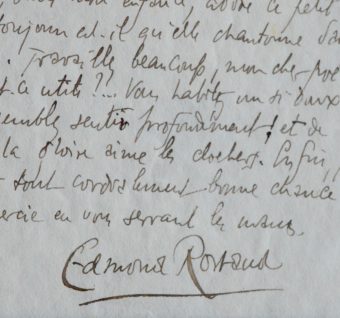 enfant, adore ce petit
toujours est-il qu'elle chantonne d'a
. Travaille beaucoup, mon cher poè
st-ce utile ?... Vous habitez un si doux
semblez sentir profondément ! et de
la gloire aime les clochers. Enfin,
sont cordialement bonne chance
ercie en vous serrant les mains.
Edmond Rostand